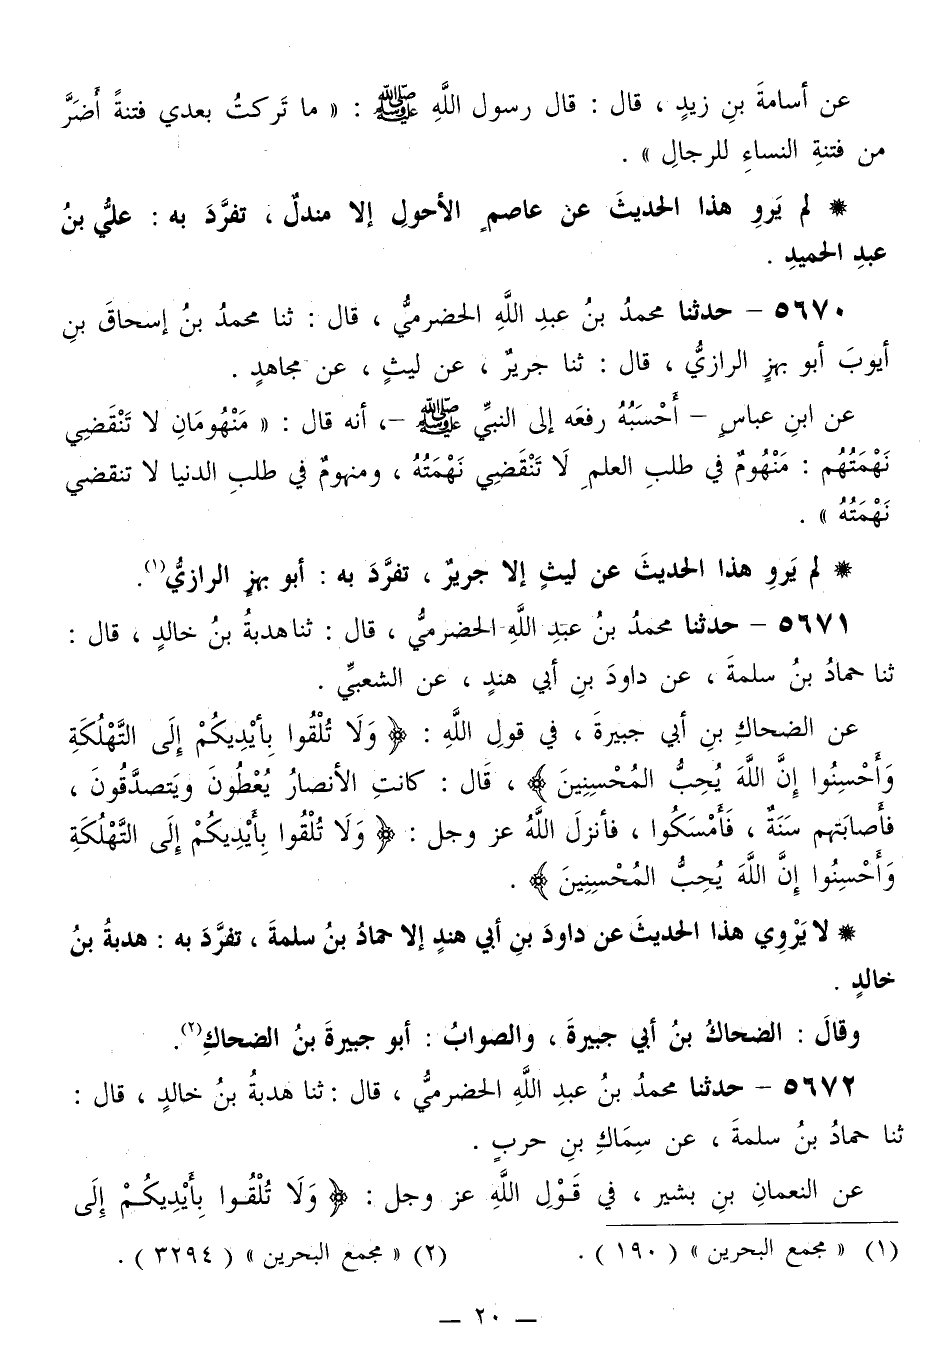 عن أسامةَ بنِ زيدٍ ، قال : قال رسول اللَّهِ ﷺ : « ما تَركتُ بعدي فتنةً أَضرَّ
من فتنةِ النساءِ للرجالِ » .
* لم يَروِ هذا الحديثَ عن عاصمٍ الأحولِ إلا مندلٌ ، تفرَّدَ به : عليُّ بنُ
عبدِ الحميدِ .
٥٦٧٠ – حدثنا محمدُ بنُ عبدِ اللَّهِ الحضرميُّ ، قال : ثنا محمدُ بنُ إسحاقَ بنِ
أيوبَ أبو بهزٍ الرازيُّ ، قال : ثنا جريرٌ ، عن ليثٍ ، عن مجاهدٍ .
عن ابنِ عباسٍ – أَحْسَبُهُ رفعَه إلى النبيِّ ﷺ –، أنه قال : « مَنْهُومَانِ لا تَنْقَضِي
نَهْمَتُهُم : مَنْهُومٌ في طلبِ العلمِ لَا تَنْقَضِي نَهْمَتُهُ ، ومنهومٌ في طلبِ الدنيا لا تنقضي
نَهْمَتُهُ » .
* لم يَروِ هذا الحديثَ عن ليثٍ إلا جريرٌ ، تفرَّدَ به : أبو بهزٍ الرازيُّ(١).
٥٦٧١ – حدثنا محمدُ بنُ عبَدِ اللَّهِ الحضرميُّ ، قال : ثنا هدبةُ بنُ خالدٍ ، قال :
ثنا حمادُ بنُ سلمةَ ، عن داودَ بنِ أبي هندٍ ، عن الشعبيِّ .
عن الضحاكِ بنِ أبي جبيرةَ ، في قولِ اللَّهِ : ﴿ وَلَا تُلْقُوا بِأَيْدِيكُمْ إِلَى التَّهْلُكَةِ
وَأَحْسِنُوا إِنَّ اللَّهَ يُحِبُّ المُحْسِنِينَ ﴾ ، قال : كانتِ الأنصارُ يُعْطُونَ ويَتصدَّقُونَ ،
فأَصابَتهم سَنَةٌ ، فَأَمْسَكُوا ، فأنزلَ اللَّهُ عز وجل : ﴿ وَلَا تُلْقُوا بِأَيْدِيكُمْ إِلَى التَّهْلُكَةِ
وَأَحْسِنُوا إِنَّ اللَّهَ يُحِبُّ المُحْسِنِينَ ﴾ .
* لا يَرْوِي هذا الحديثَ عن داودَ بنِ أبي هندٍ إلا حمادُ بنُ سلمةَ ، تفرَّدَ به : هدبةُ بنُ
خالدٍ .
وقالَ : الضحاكُ بنُ أبي جبيرةَ ، والصوابُ : أبو جبيرةَ بنُ الضحاكِ(٢).
٥٦٧٢ – حدثنا محمدُ بنُ عبدِ اللَّهِ الحضرميُّ ، قال : ثنا هدبةُ بنُ خالدٍ ، قال :
ثنا حمادُ بنُ سلمةَ ، عن سِمَاكِ بنِ حربٍ .
عن النعمانِ بنِ بشير ، في قَوْلِ اللَّهِ عز وجل : ﴿ وَلَا تُلْقُوا بِأَيْدِيكُمْ إِلَى
(١) « مجمع البحرين » ( ١٩٠ ) .
(٢) « مجمع البحرين » ( ٣٢٩٤ ) .
— ٢٠ —